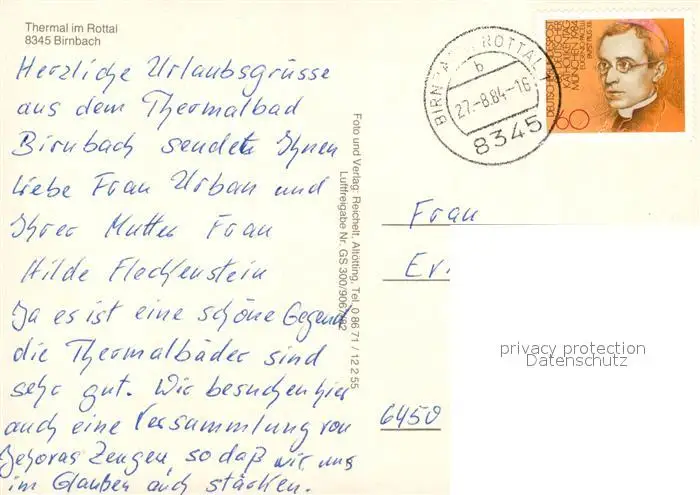 Thermal im Rottal
8345 Birnbach
Herzliche Urlaubsgrüsse
aus dem Thermalbad
Birnbach sendet Ihnen
liebe Frau Urban und
Ihrer Mutter Frau
Hilde Flechsenstein
Ja es ist eine schöne Gegend
die Thermalbäder sind
sehr gut. Wir besuchen hier
auch eine Versammlung von
Jehovas Zeugen, so daß wir uns
im Glauben auch stärken.
Foto und Verlag: Reichelt, Altötting, Tel. 0 86 71 / 12 2 55
Luftfreigabe Nr. GS 300/9067/82
27.-8.84-16
b
8345
DEUTSCHE BUNDESPOST
60
Frau
6450
privacy protection
Datenschutz